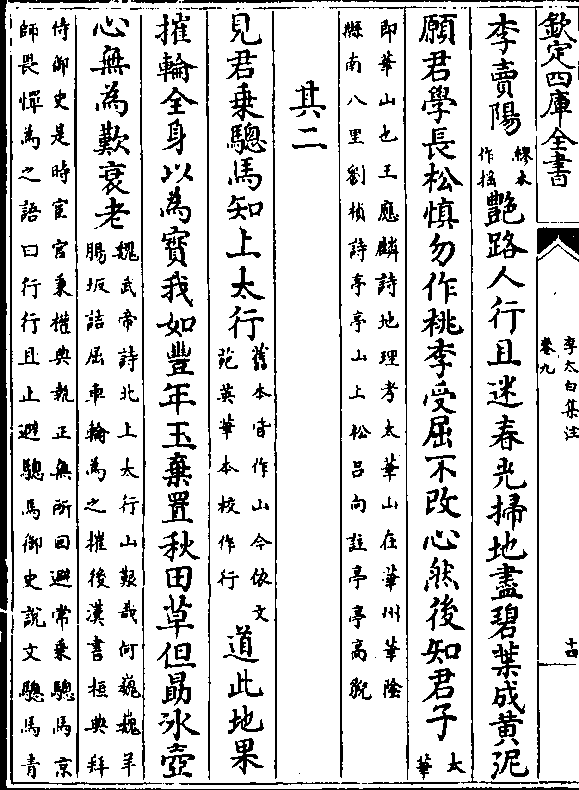 欽定四庫全書
李太白集注
卷九
十四
李賣陽繆本作搖艷路人行且迷春光掃地盡碧葉成黄泥
願君學長松慎勿作桃李受屈不改心然後知君子太華
即華山也王應麟詩地理考太華山在華州華隂
縣南八里劉楨詩亭亭山上松吕向註亭亭高貌
其二
見君乗驄馬知上太行舊本皆作山今依文苑英華本校作行道此地果
摧輪全身以為寳我如豐年玉棄置秋田草但朂氷壺
心無為歎衰老魏武帝詩北上太行山艱哉何巍巍羊
腸坂詰屈車輪為之摧後漢書桓典拜
侍御史是時宦官秉權典執正無所回避常乗驄馬京
師畏憚為之語曰行行且止避驄馬御史説文驄馬青